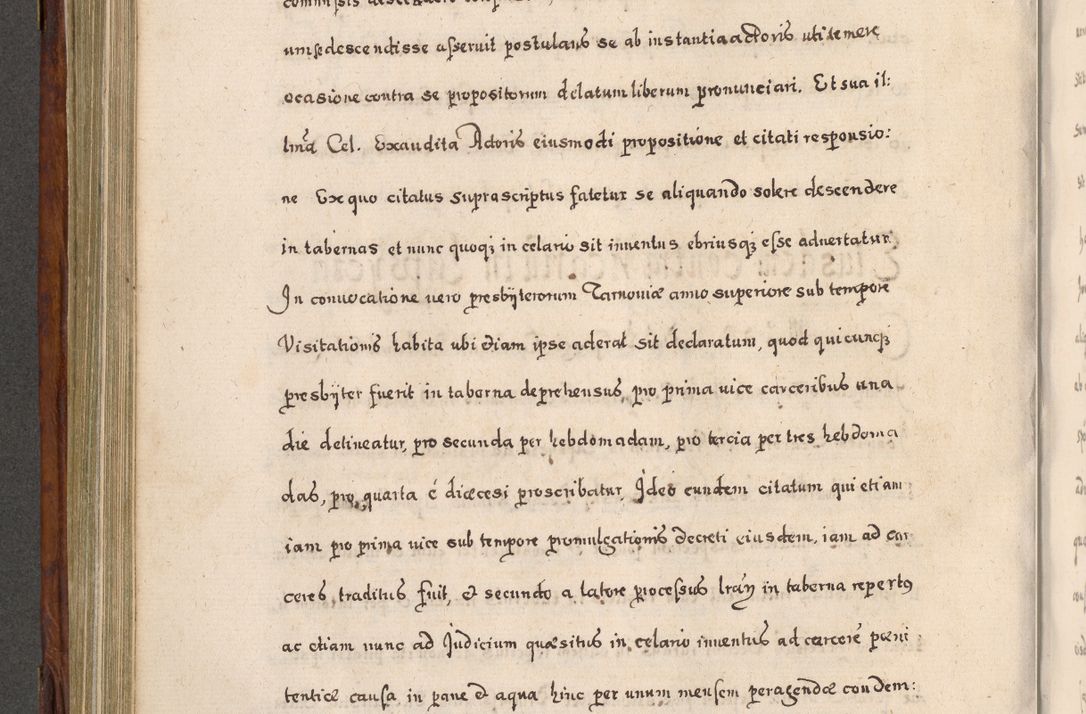 umse descendisse asseruit postulans se ab instantia actoris uti temere
ocasione contra se propositorum delatum liberum pronunciari. Et sua il:
lma Cel. Exaudita Actoris eiusmodi propositione et citati responsio:
ne Ex quo citatus suprascriptus fatetur se aliquando solere descendere
in tabernas et nunc quoqꝫ in celario sit inuentus ebriusqꝫ esse aduertatur.
In conuocatione uero presbÿterorum Tarnouiæ anno superiore sub tempore
Visitationis habita ubi etiam ipse aderat sit declaratum, quod quicunqꝫ
presbÿter fuerit in taberna deprehensus, pro prima uice carceribus una
die detineatur, pro secunda per hebdomadam, pro tercia per tres hebdoma
das, pro quarta é diæcesi proscribatur, Ideo eundem citatum qui etiam
iam pro prima uice sub tempore promulgationis decreti eiusdem, iam ad car
ceres traditus fuit, et secundo a latore processus lrāꝝ in taberna repertꝰ
ac etiam nunc ad Judicium quæsitus in celario inuentus ad carcerē pæni
tentiæ causa in pane et aqua hinc per unum mensem peragendæ condem: